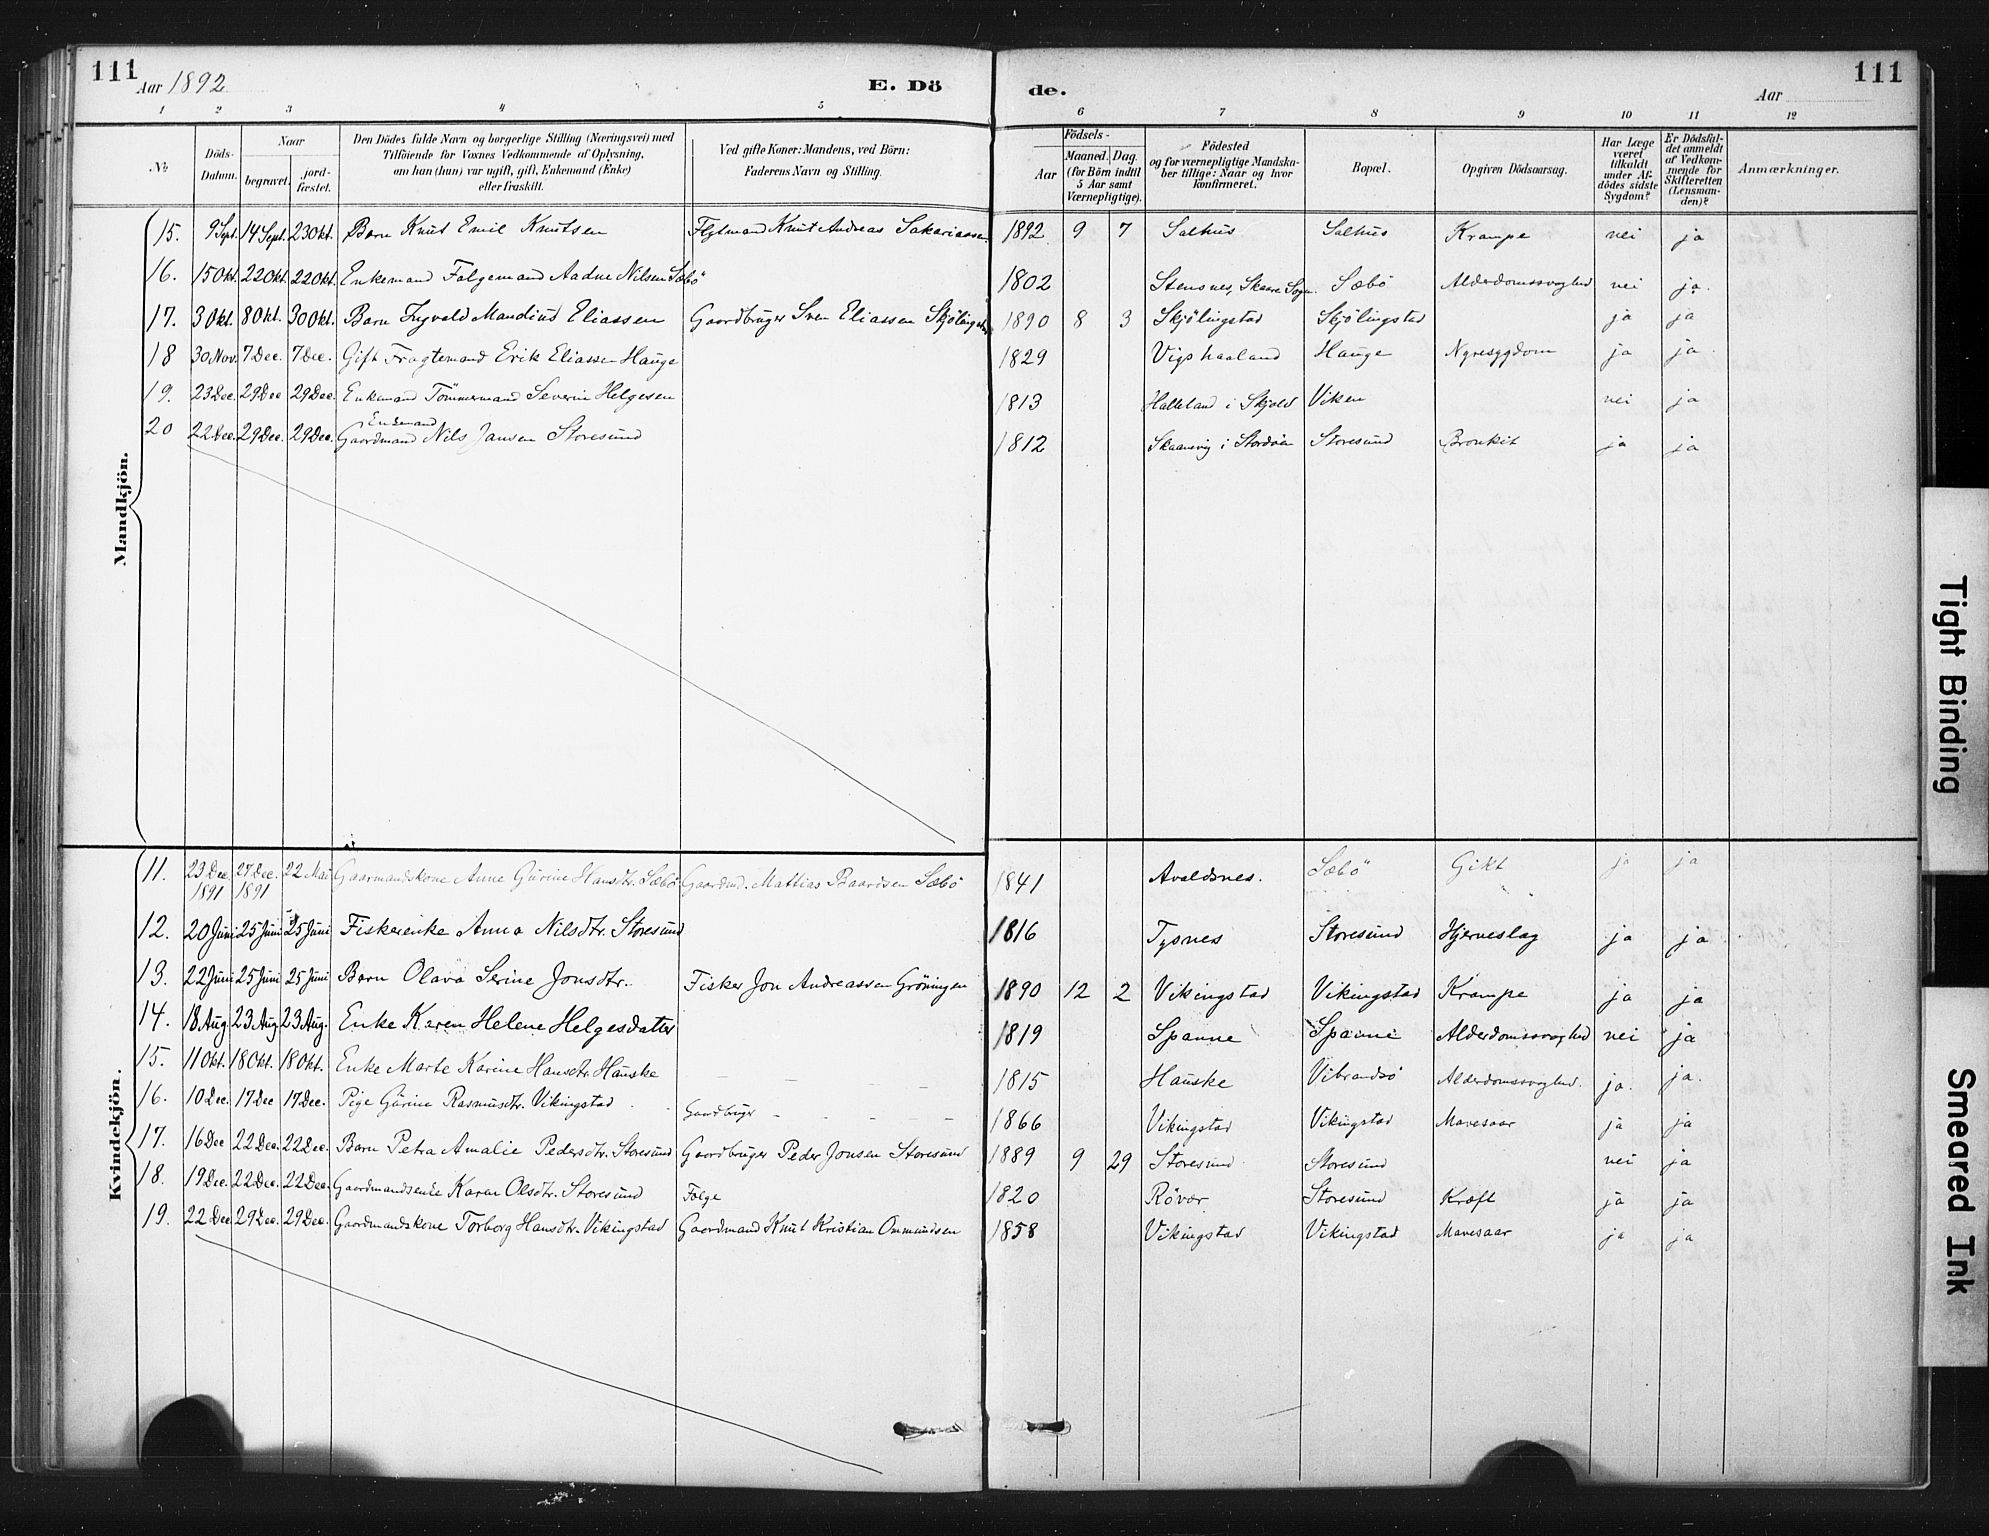 111
Aar 1892
E. Dö
de.
Aar
111
1 2 3 4 5 6 7 8 9 10 11 12
№
Döds-Datum.
Naar
begravet.
jord-fæstet.
Den Dödes fulde Navn og borgerlige Stilling (Næringsvei) med
Tilföiende for Voxnes Vedkommende af Oplysning,
om han (hun) var ugift, gift, Enkemand (Enke)
eller fraskilt.
Ved gifte Koner: Mandens, ved Börn:
Faderens Navn og Stilling.
Födsels-
Aar
Maaned. Dag.
(for Börn indtil
5 Aar samt
Værnepligtige).
Födested
og for værnepligtige Mandska-
ber tillige: Naar og hvor
konfirmeret.
Bopæl.
Opgiven Dödsaarsag.
Har Læge
været
tilkaldt
under Af-
dödes sidste
Sygdom?
Er Dödsfal-
det anmeldt
af Vedkom-
mende for
Skifteretten
(Lensman-
den)?
Anmærkninger.
Mandkjön.
15. 9 Sept. 14 Sept. 23 Okt. Barn Knut Emil Knutsen Knut Andreas Sakariassen 1892 9 7 Salhus Salhus Krampe nei ja
16. 15 Okt. 22 Okt. 22 Okt. Enkemand Folgemand Aadne Nilsen Sæbö 1802 Stensnes, Skaare Sogn. Sæbö Alderdomssvaghed nei ja.
17. 3 Okt. 8 Okt. 30 Okt. Barn Ingvald Mandius Eliassen Gaardbruger Sven Eliassen 1890 8 3 Skjölingstad Skjölingstad ja ja
18 30 Nov. 7 Dec. 7 Dec. Gift Fragtemand Erik Eliassen Hauge 1829 Vigshaaland Hauge Nyresygdom ja ja
19. 23 Dec. 29 Dec 29 Dec. Enkemand Tömmermand Severin Helgesen 1813 Halleland i Skjold Viken nei ja
20 22 Dec. 29 Dec. 29 Dec. Enkemand Gaardmand Nils Jansen Storesund 1812 i Storesund Bronkit ja ja
Kvindekjön.
11. 23 Dec 1891 27 Dec. 1891 22 Mai Gaarmandskone Anne Gurine Hansdtr. Sæbö Gaardmd. Mattias Baardsen Sæbö 1841 Avaldsnes. Sæbö Gikt ja ja
12. 20 Juni 25 Juni 25 Juni Fiskerenke Anna Nilsdtr. Storesund 1816 Tysnes Storesund Hjerneslag ja ja
13. 22 Juni 25 Juni 25 Juni Barn Olava Serine Jonsdtr. Fisker Jon Andreassen Gröningen 1890 12 2 Vikingstad Vikingstad Krampe ja ja
14. 18 Aug. 23 Aug 23 Aug. Enke Karen Helene Helgesdatter 1819 Spanne Spanne Alderdomssvaghed nei ja
15. 11 Okt. 18 Okt. 18 Okt. Enke Marte Karine Hansdtr. Hauske – – – – 1815 Hauske Vibrandsö Alderdomssvaghed. ja. ja.
16. 10 Dec. 17 Dec 17 Dec. Pige Gurine Rasmusdtr. Vikingstad Gaardbruger – – – – 1866 Vikingstad Vikingstad Mavesaar ja ja
17. 16 Dec 22 Dec. 22 Dec. Barn Petra Amalie Pedersdtr. Storesund Gaardbruger Peder Jonsen Storesund 1889 9 29 Storesund Storesund nei ja
18. 19 Dec. 22 Dec. 22 Dec. Gaardmandsenke Karen Olsdtr. Storesund Folge 1820 Rövær Storesund Kræft ja ja
19. 22 Dec 29 Dec. 29 Dec. Gaardmandskone Torborg Hansdtr. Vikingstad Gaardmand Knut Kristian Ommundsen 1858 Vikingstad Vikingstad Mavesaar ja ja
Tight Binding
Smeared Ink